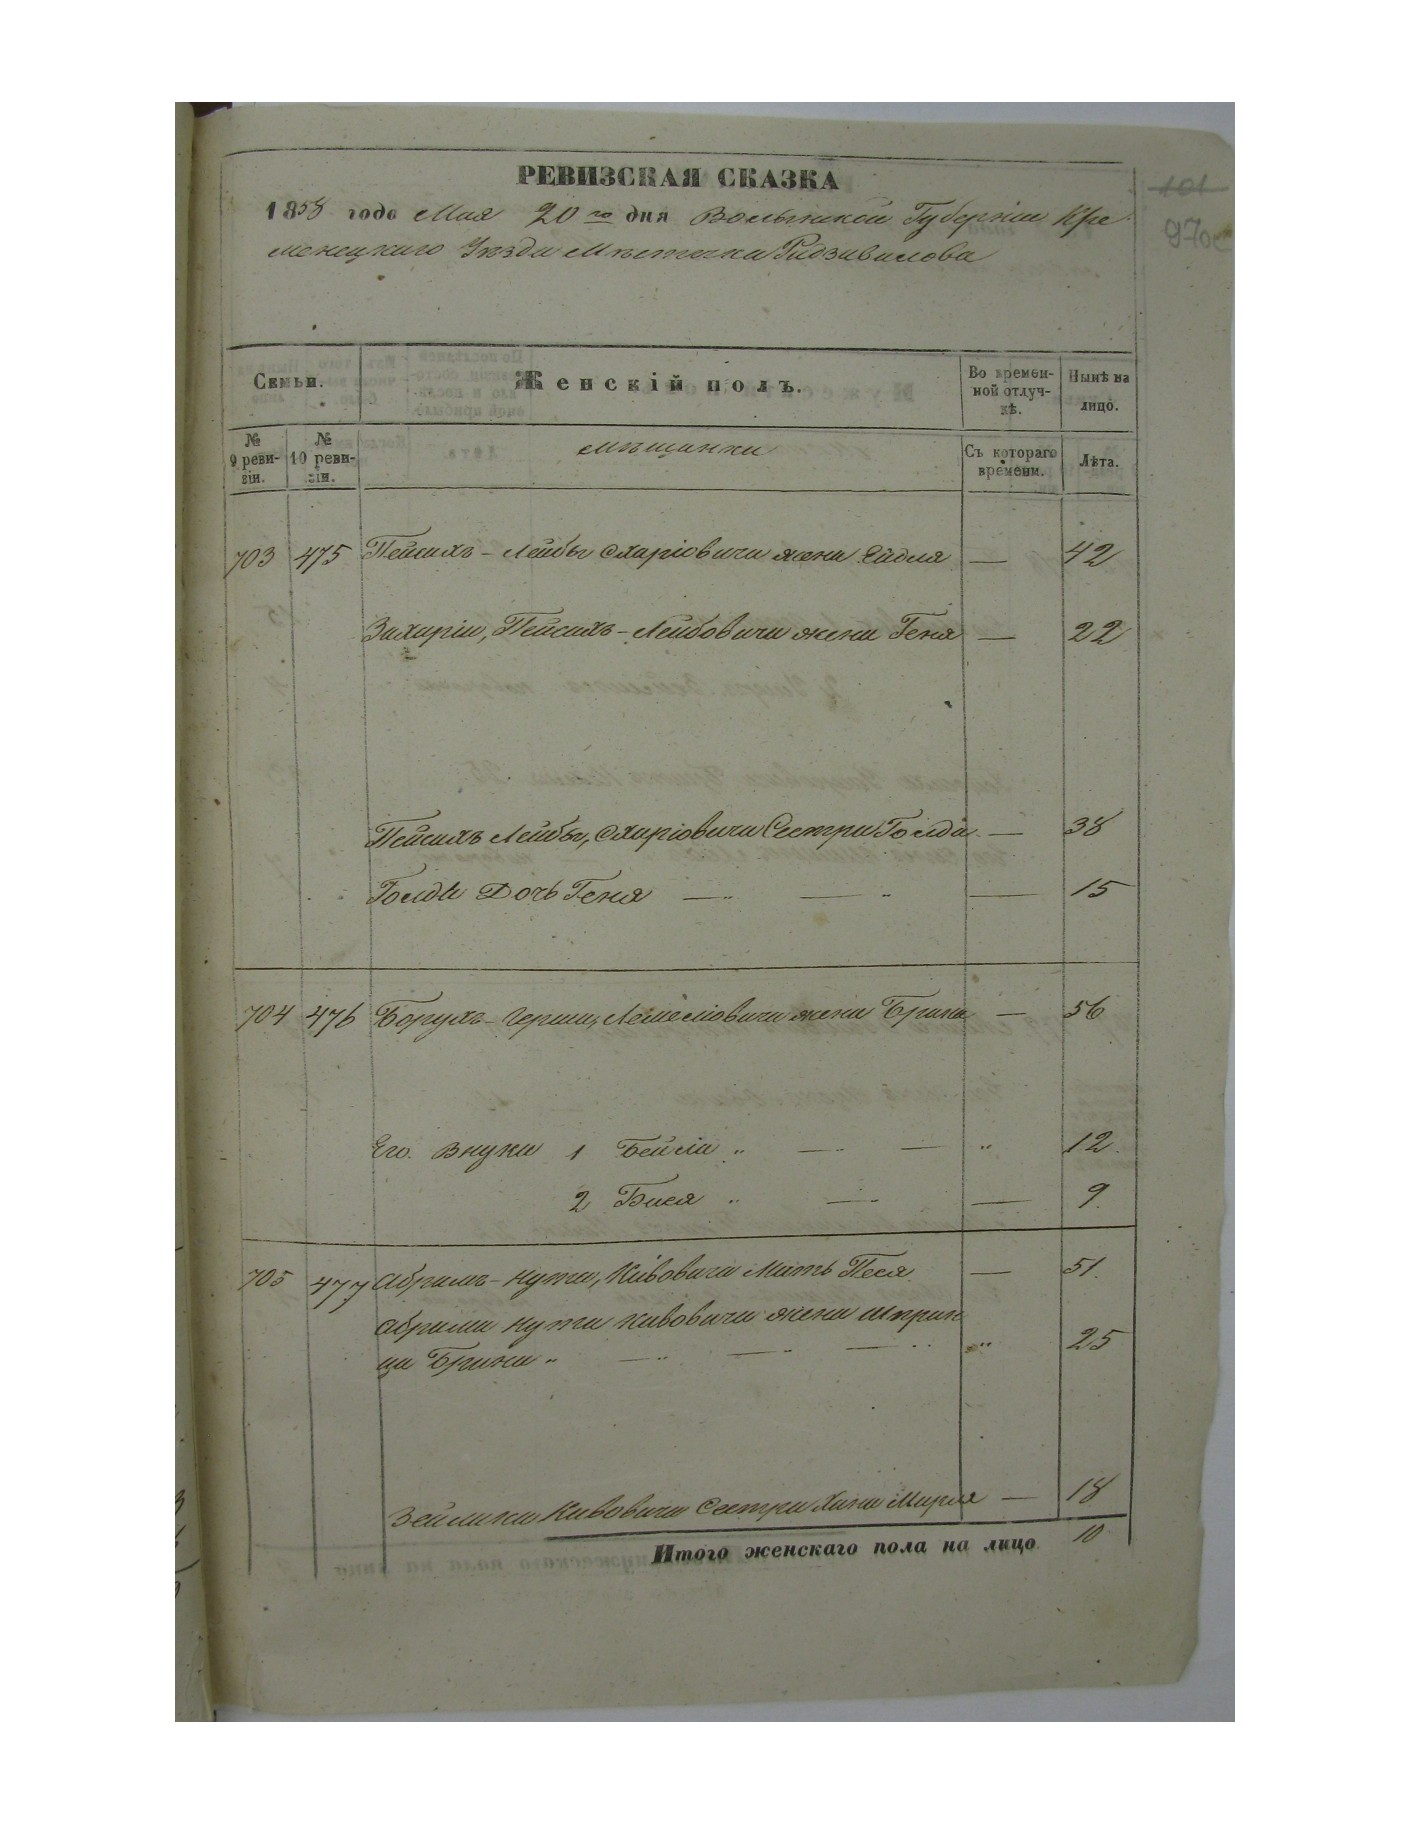 101
970
РЕВИЗСКАЯ СКАЗКА
1858 года Мая 20го дня Волынской Губерніи Кре
менецкаго Уѣзда Мѣстечка Радзивилова
Семьи. Женскій полъ. Во времен-ной отлуч-кѣ. Нынѣ на лицо.
№ 9 реви-зіи. № 10 реви-зіи. Мѣщанки Съ котораго времени. Лѣта.
703 475 Пейсахъ-Лейбы Охаріовича жена Ейдля — 42
Захаріи, Пейсахъ-Лейбовича жена Геня — 22
Пейсахъ Лейбы, Охаріовича Сестра Голда — 38
Голды Дочь Геня — — — 15
704 476 Борухъ-Герша, жена Брана — 56
Его Внуки 1 Бейла " — — " 12
2 Бася " — — 9.
705 477 Абрамъ-Нута, Кивовича Мать Песя — 51.
Абрама Нута Кивовича жена Шприн
ца Брана " — — — " 25
Зейлика Кивовича Сестра Хана Мирля — 18
Итого женскаго пола на лицо 10